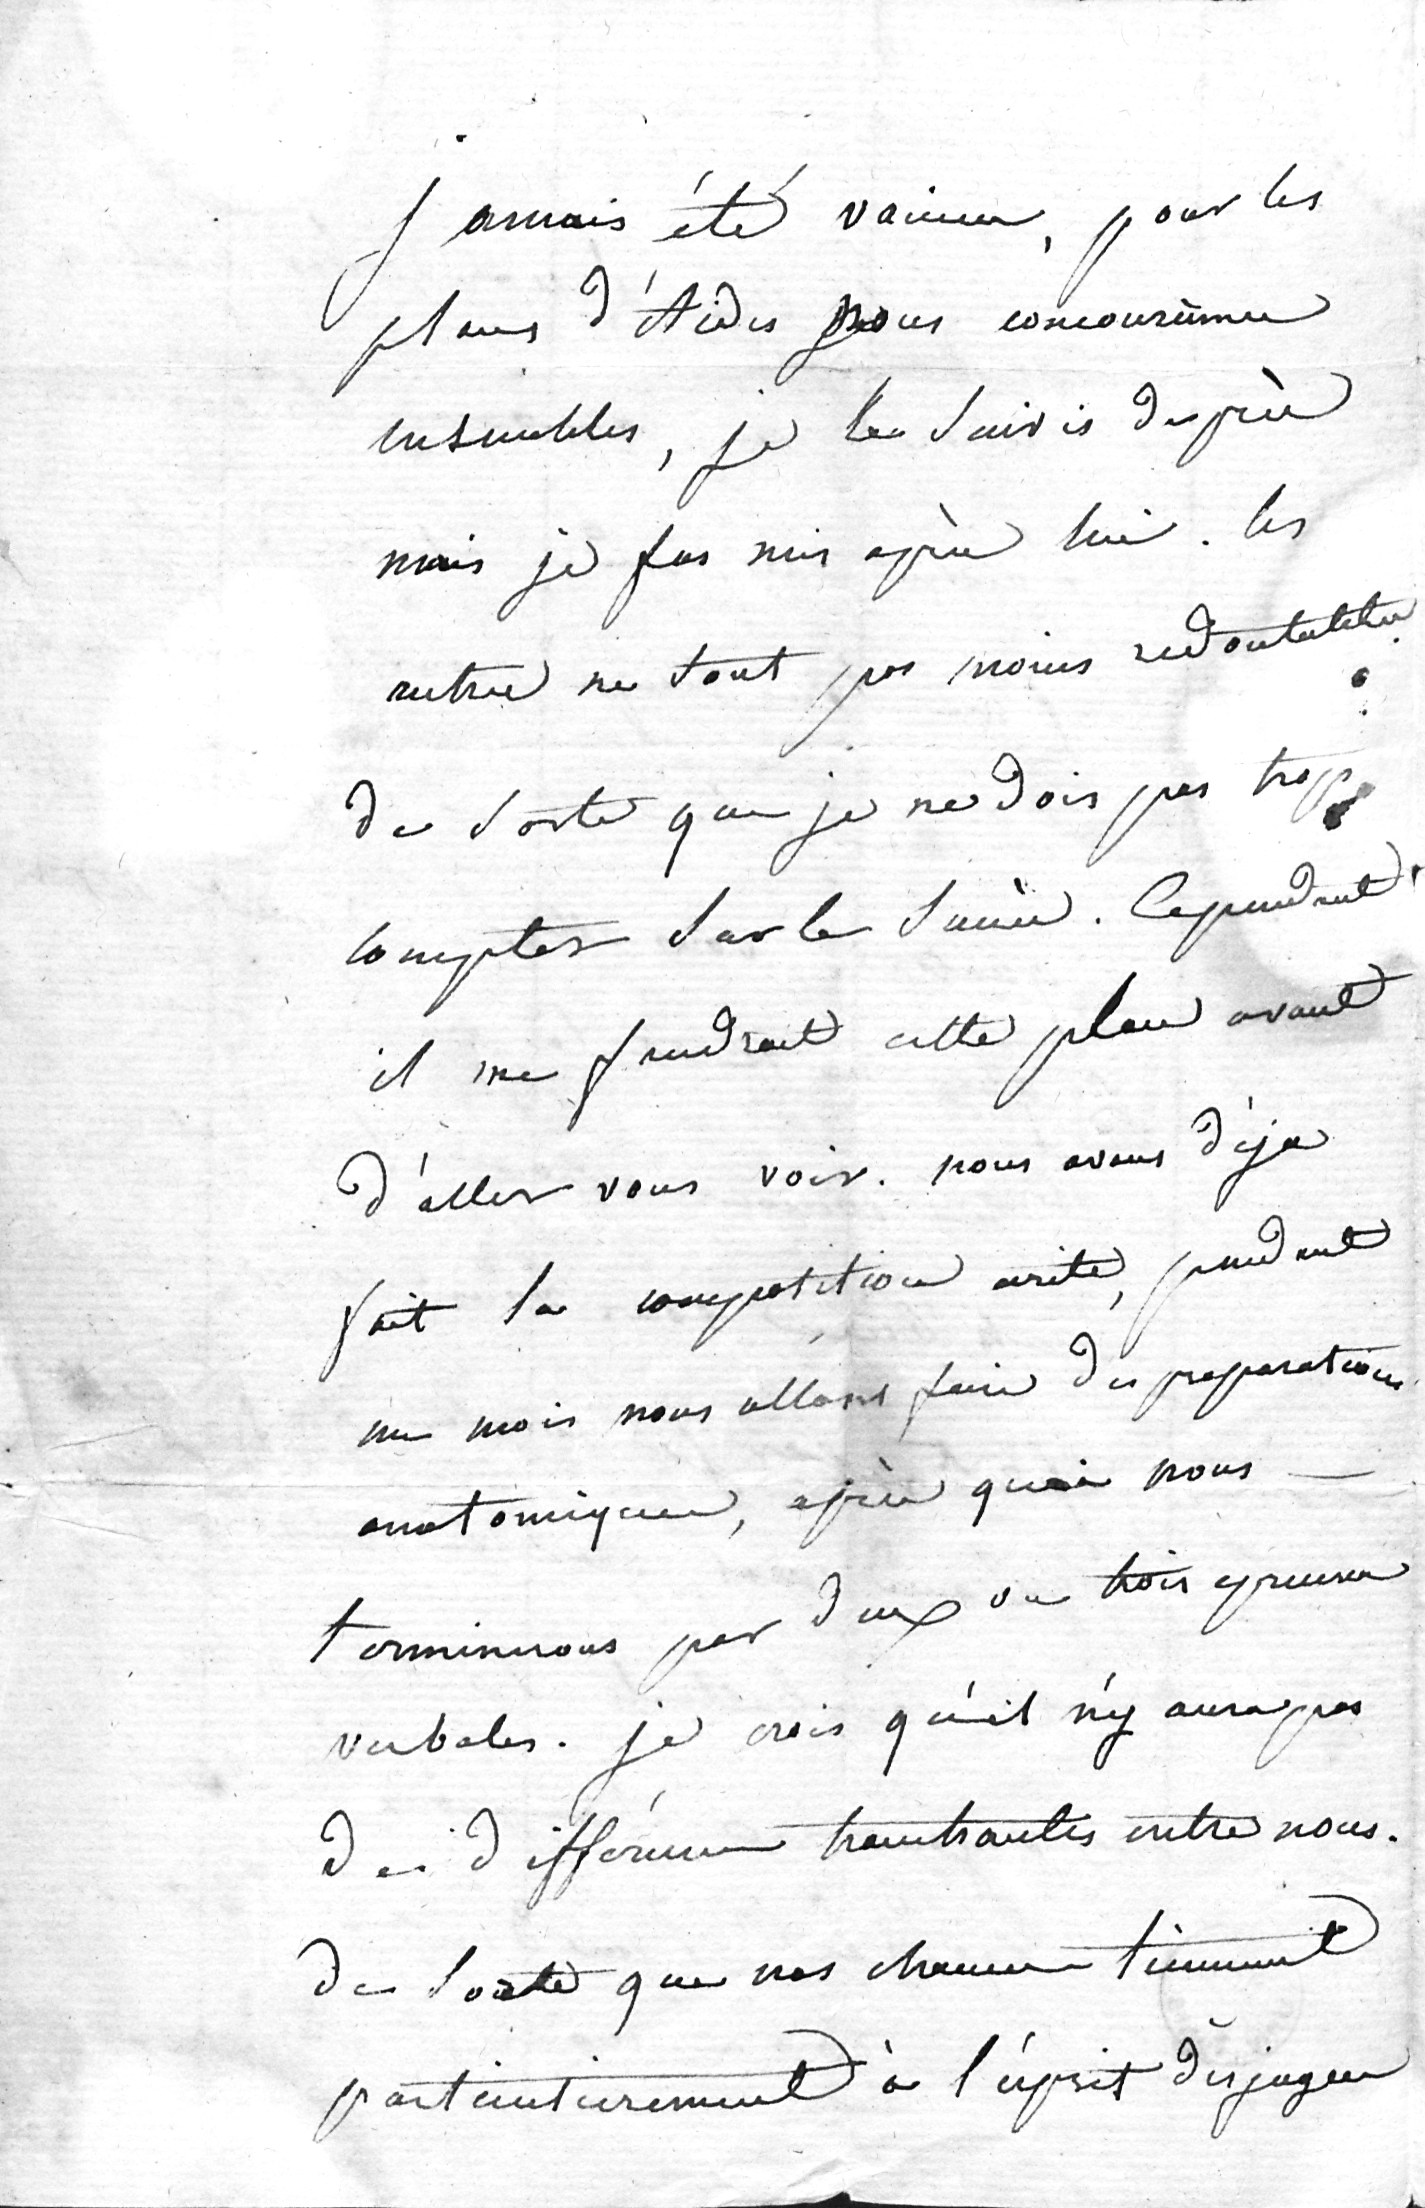 jamais été vaincu, pour les
places d'Aides nous concourûmes
ensembles, je le suivis de près
mais je fus mis après lui. les
autres ne sont pas moins redoutables
de sorte que je ne dois pas trop
compter sur le succès. Cependant
il me faudrait cette place avant
d'aller vous voir. nous avons déja
fait la composition écrite, pendant
un mois nous allons faire des preparations
anatomiques, après quoi nous —
terminerons par deux ou trois epreuves
verbales. je crois qu'il n'y aura pas
de differences tranchantes entre nous.
de sorte que nos chances tiennent
particulierement à l'ésprit des juges